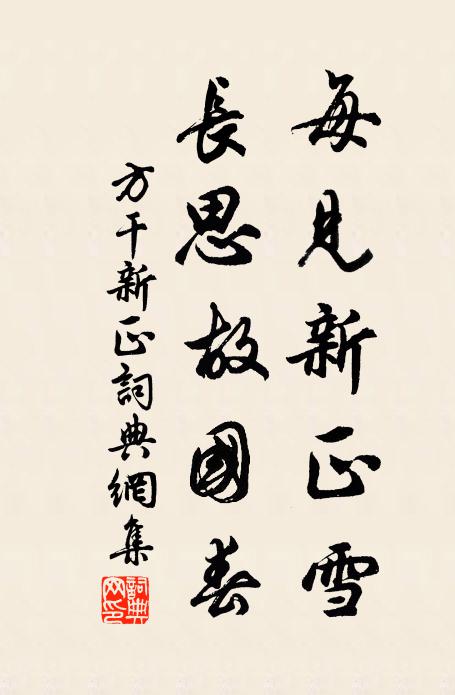 每見新正雪
長思故國春
方干新正詞典網集
詞典網印